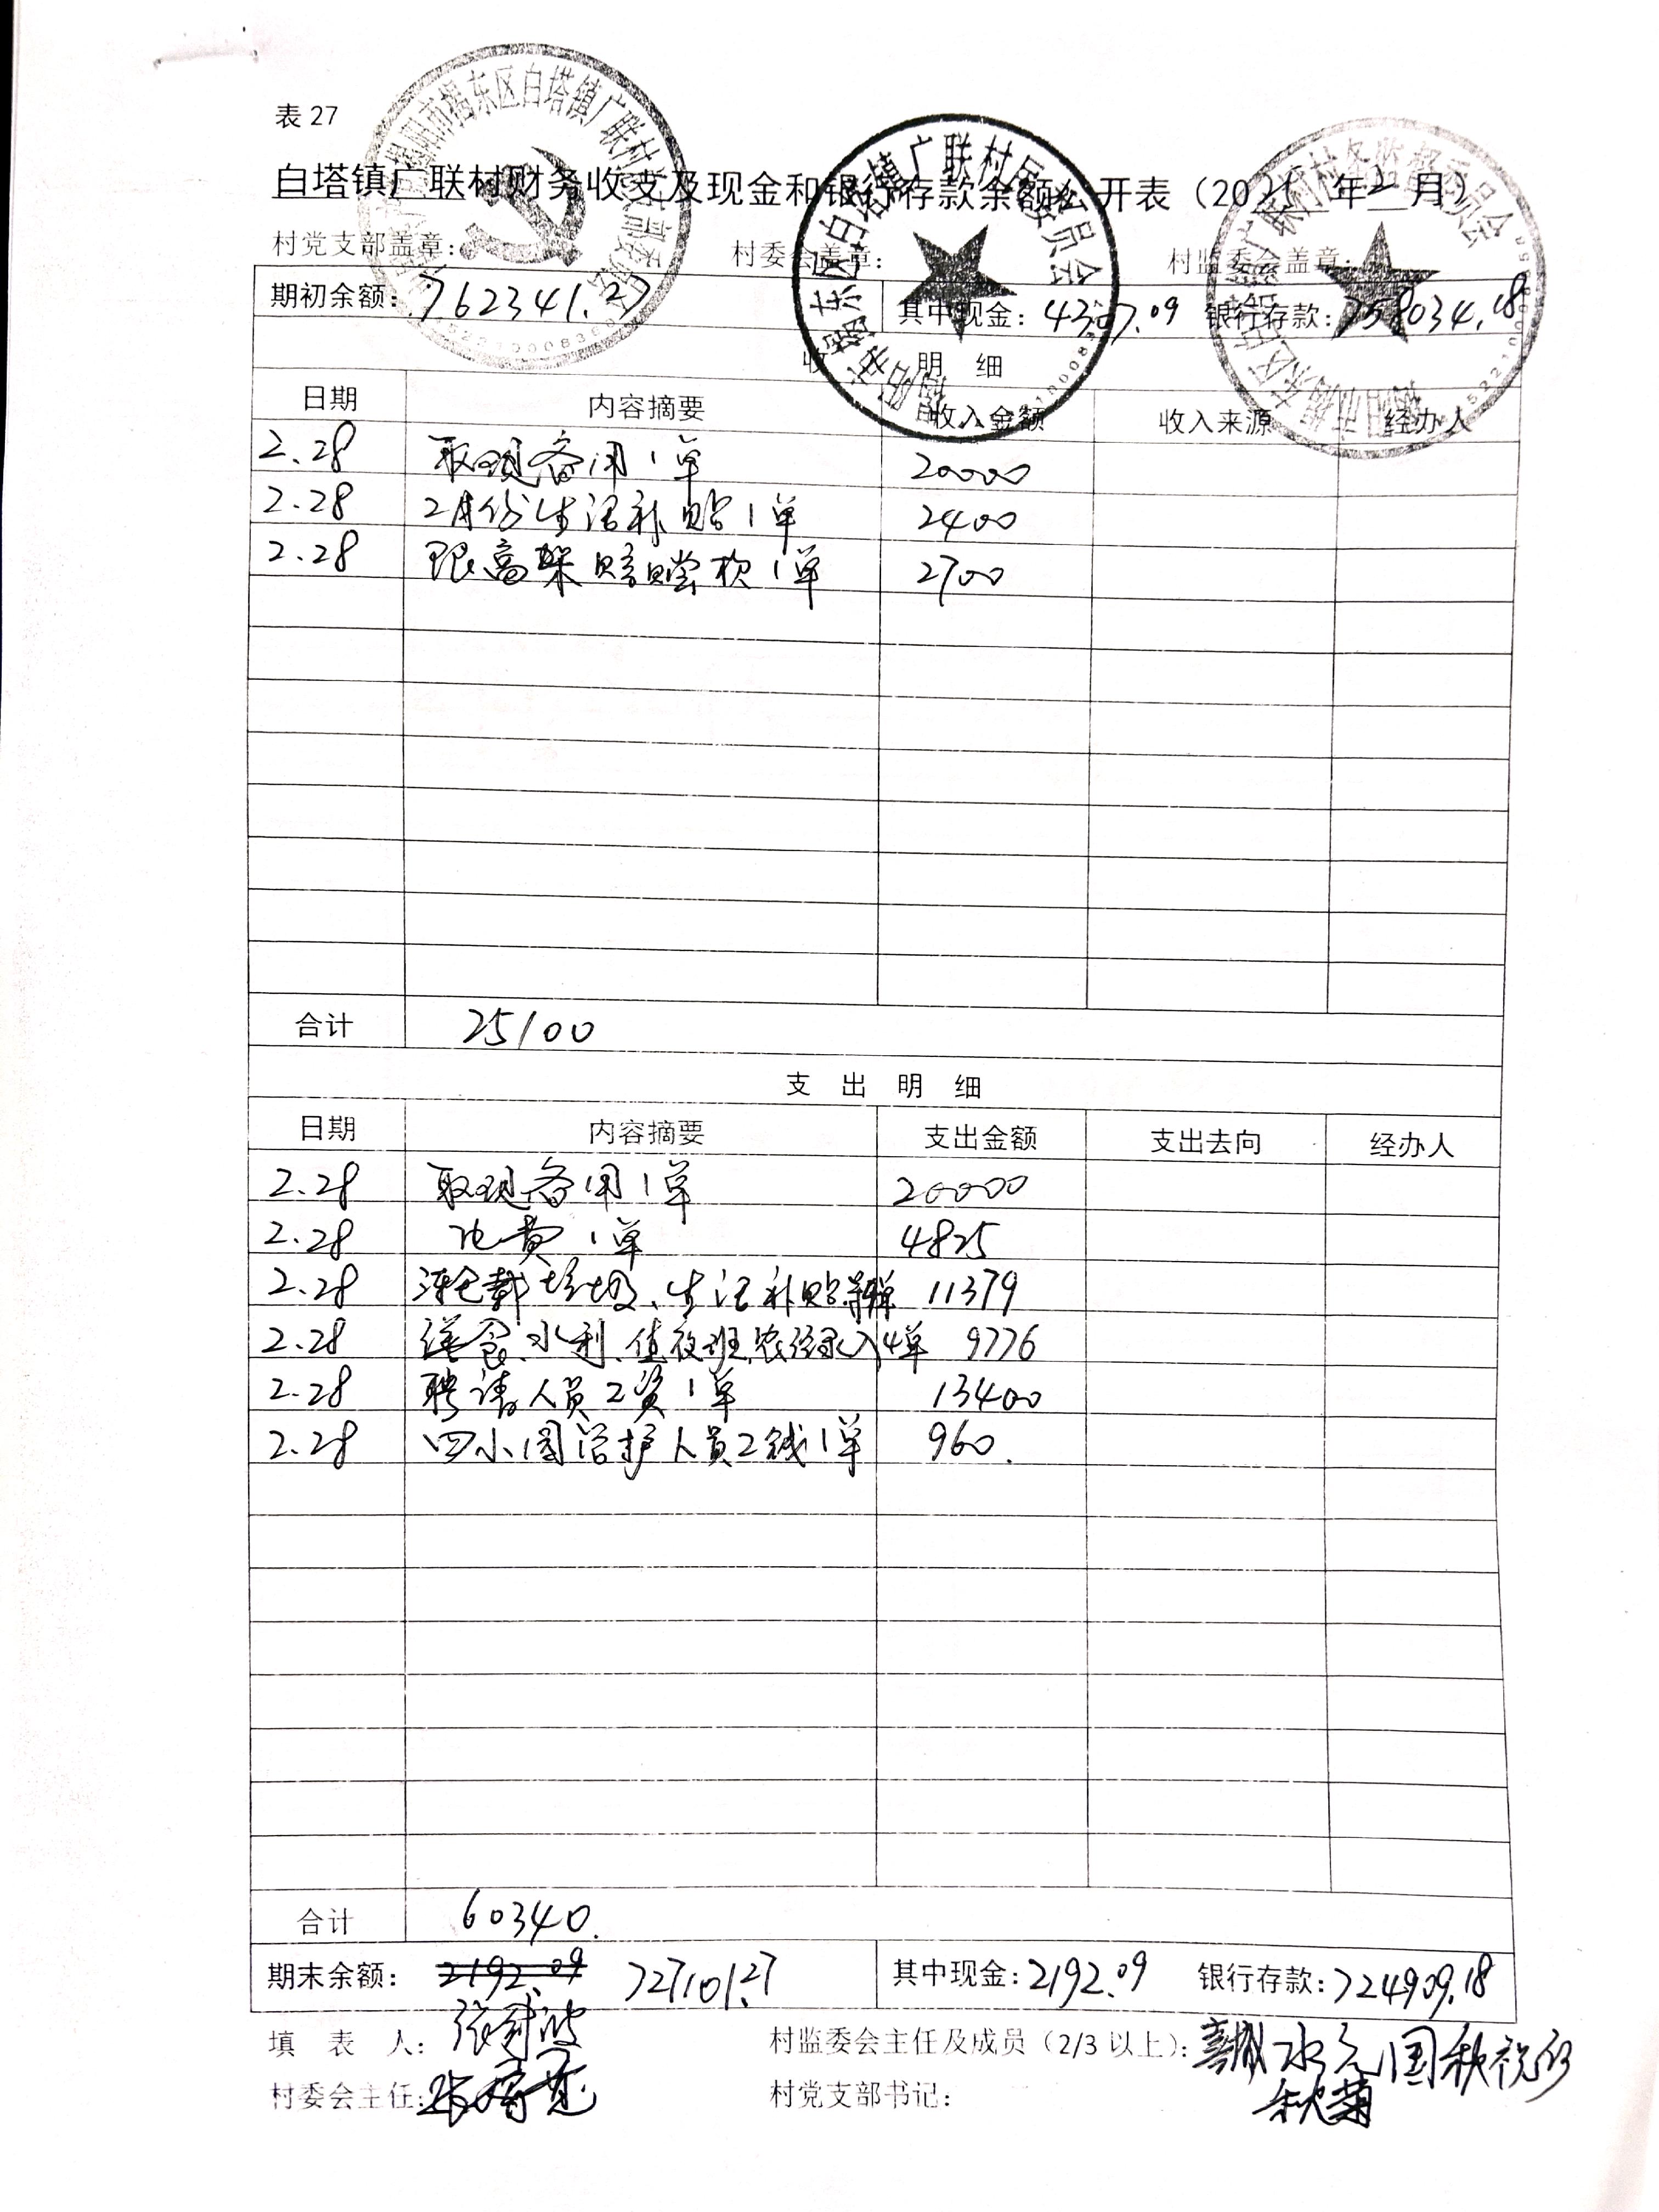 表 27
白塔镇广联村财务收支及现金和银行存款余额公开表（2021年2月）
村党支部盖章： 村委会盖章： 村监委会盖章：
期初余额：762341.27 其中现金：4307.09 银行存款：758034.18
收 入 明 细
日期 内容摘要 收入金额 收入来源 经办人
2.28 取现备用1单 20000
2.28 2月份生活补贴1单 2400
2.28 高架赔偿款1单 2700
合计 25100
支 出 明 细
日期 内容摘要 支出金额 支出去向 经办人
2.28 取现备用1单 20000
2.28 电费1单 4825
2.28 载垃圾、生活补贴 11379
2.28 水利、值夜班、农经录入4单 9776
2.28 聘请人员工资1单 13400
2.28 四小园管护人员工钱1单 960
合计 60340
期末余额： 2192.09 727101.27 其中现金：2192.09 银行存款：724909.18
填 表 人： 村监委会主任及成员（2/3 以上）：
村委会主任： 村党支部书记： 秋菊